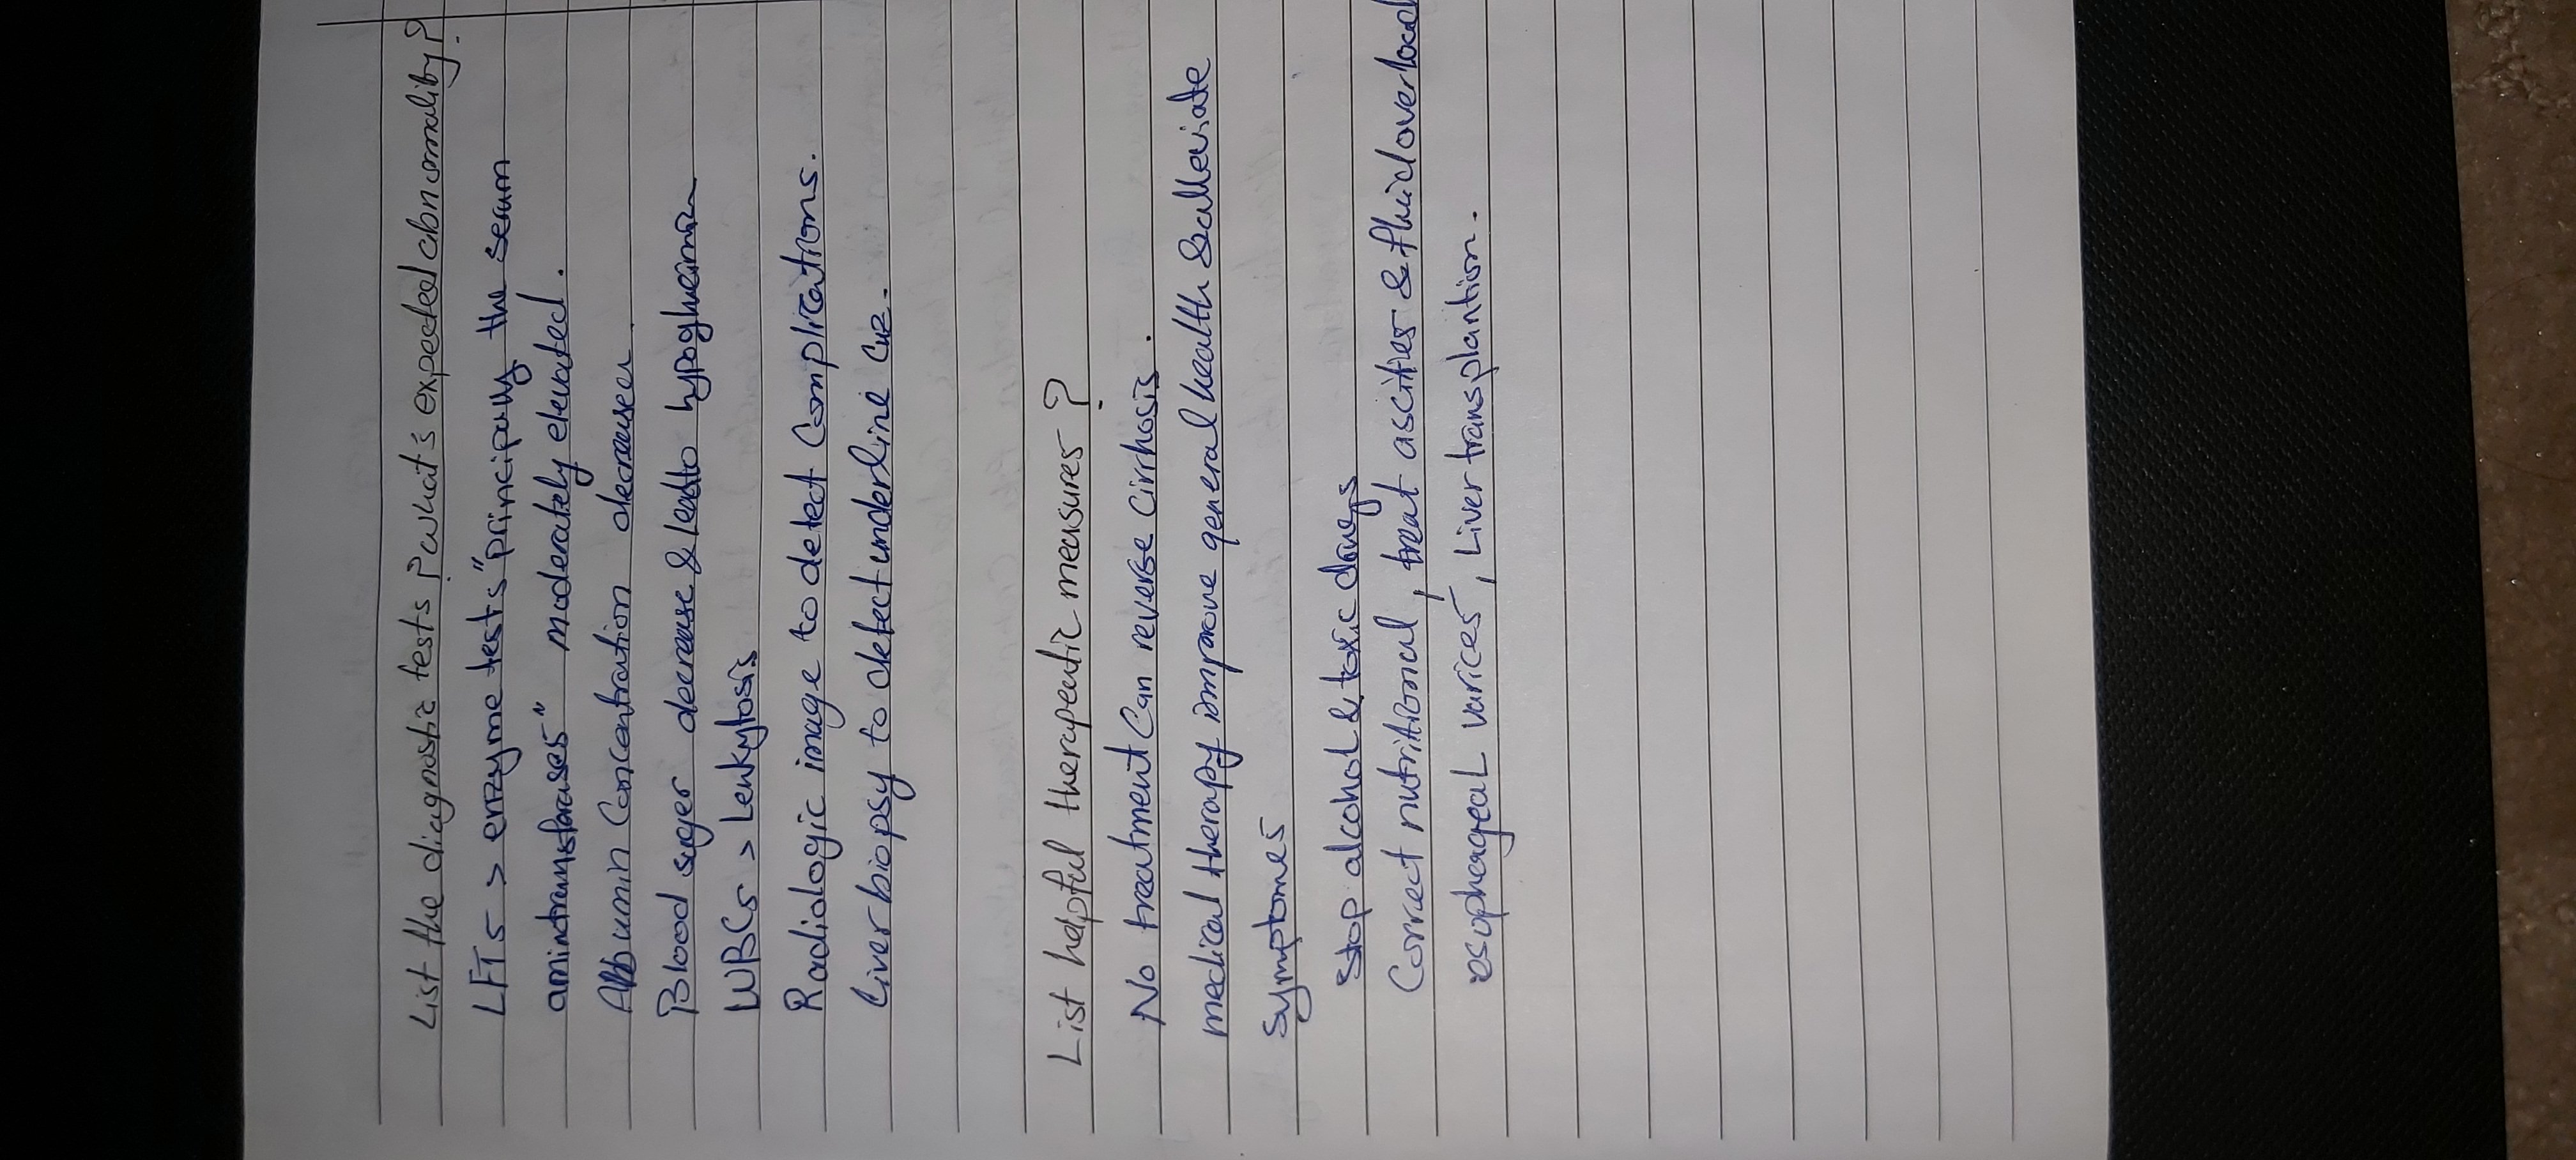 List the diagnostic tests? what's expected abnormality?
LFTs > enzyme tests "principally the serum
aminotransferases" moderately elevated.
Albumin Concentration decreases.
Blood suger decrease & lead to hypoglycemia
WBCs > Leukytosis
Radiologic image to detect Complications.
Liver biopsy to detect underline
List helpful therapeutic measures?
No treatment Can reverse Cirrhosis.
medical therapy improve general health & alleviate
symptomes
stop alcohol & toxic drugs
Correct nutritional, treat ascities & fluid overload
esophergeal varices, Liver transplantion.